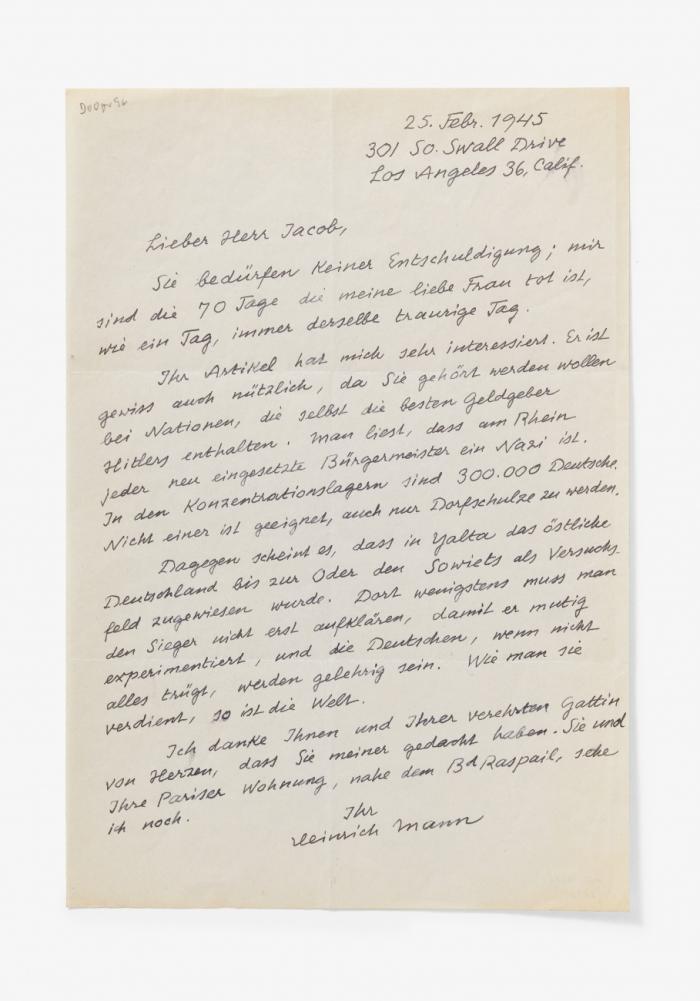 25. Febr. 1945
301 So. Swall Drive
Los Angeles 36, Calif.
Lieber Herr Jacob,
Sie bedürfen keiner Entschuldigung; mir
sind die 70 Tage die meine liebe Frau tot ist,
wie ein Tag, immer derselbe traurige Tag.
Ihr Artikel hat mich sehr interessiert. Er ist
gewiss auch nützlich, da Sie gehört werden wollen
bei Nationen, die selbst die besten Geldgeber
Hitlers enthalten. Man liest, dass am Rhein
jeder neu eingesetzte Bürgermeister ein Nazi ist.
In den Konzentrationslagern sind 300.000 Deutsche.
Nicht einer ist geeignet, auch nur Dorfschulze zu werden.
Dagegen scheint es, dass in Yalta das östliche
Deutschland bis zur Oder den Sowiets als Versuchs-
feld zugewiesen wurde. Dort wenigstens muss man
den Sieger nicht erst aufklären, damit er mutig
experimentiert, und die Deutschen, wenn nicht
alles trügt, werden gelehrig sein. Wie man sie
verdient, so ist die Welt.
Ich danke Ihnen und Ihrer verehrten Gattin
von Herzen, dass Sie meiner gedacht haben. Sie und
Ihre Pariser Wohnung, nahe dem Bd Raspail, sehe
ich noch.
Ihr
Heinrich Mann